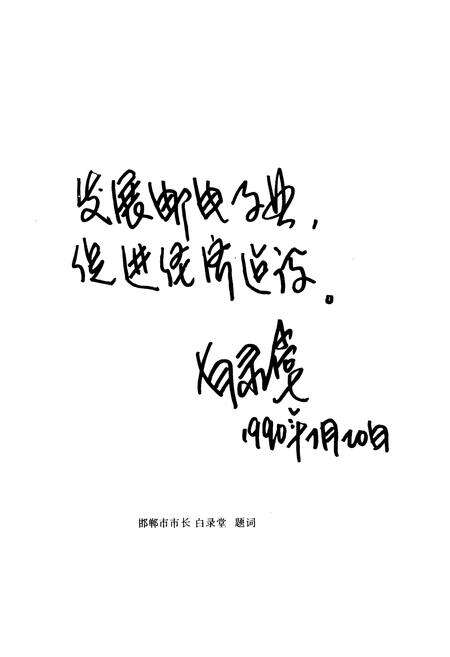 发展邮电事业，
促进经济建设。
白录堂
1990年7月20日
邯郸市市长 白录堂 题词